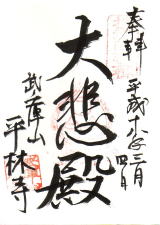 奉拝 平成十八年三月四日
大悲殿
武庫山
平林寺